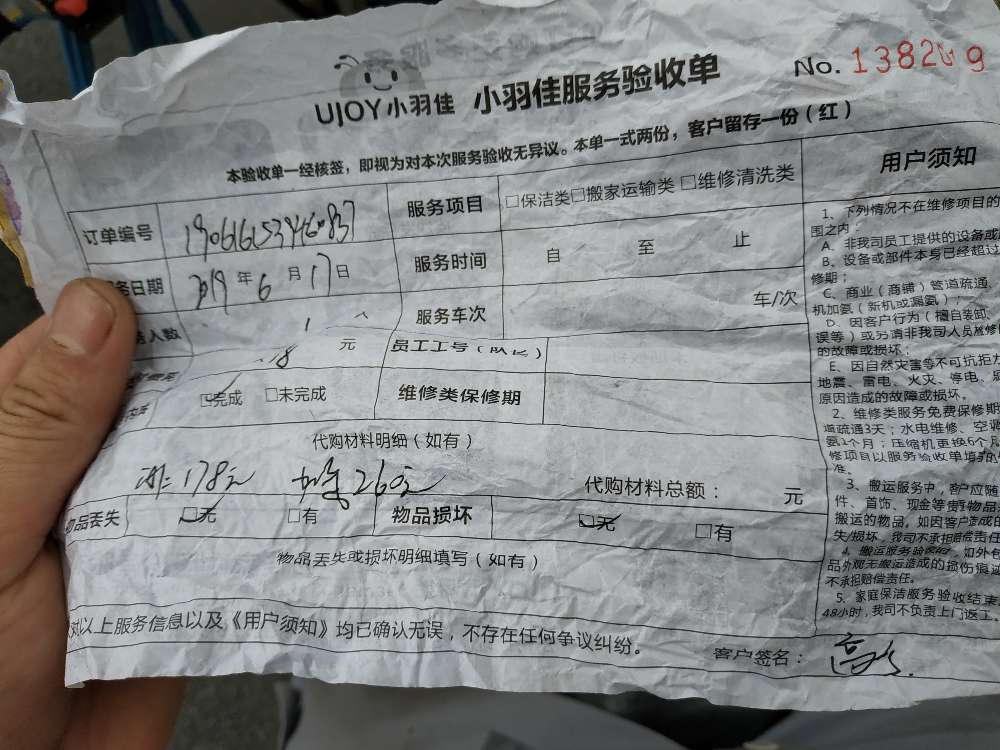 UJOY小羽佳 小羽佳服务验收单 No.
本验收单一经核签，即视为对本次服务验收无异议。本单一式两份，客户留存一份（红）
订单编号 服务项目 □保洁类□搬家运输类 □维修清洗类
务日期 2019年6月17日 服务时间 自 至 止
人数 1 人 服务车次 车/次
元 员工工号（队长）
☑完成 □未完成 维修类保修期
代购材料明细（如有）
178元 260元 代购材料总额： 元
物品丢失 ☑无 □有 物品损坏 ☑无 □有
物品丢失或损坏明细填写（如有）
对以上服务信息以及《用户须知》均已确认无误，不存在任何争议纠纷。
客户签名：
用户须知
1、下列情况不在维修项目的
围之内：
A、非我司员工提供的设备或
B、设备或部件本身已经超过
修期；
C、商业（商铺）管道疏通、
机加氨（新机或漏氨）；
D、因客户行为（擅自装卸、
误等）或另请非我司人员维修
的故障或损坏；
E、因自然灾害等不可抗拒
地震、雷电、火灾、停电、
原因造成的故障或损坏。
2、维修类服务免费保修期
道疏通3天；水电维修、空调
氨1个月；压缩机更换6个月
修项目以服务验收单填写的
准。
3、搬运服务中，客户应随
件、首饰、现金等贵重物品
搬运的物品，如因客户造成
失/损坏，我司不承担赔偿责任
4、搬运服务验收时，如外包
品外观无搬运造成的损伤痕迹
不承担赔偿责任。
5、家庭保洁服务验收结束
48小时，我司不负责上门返工。